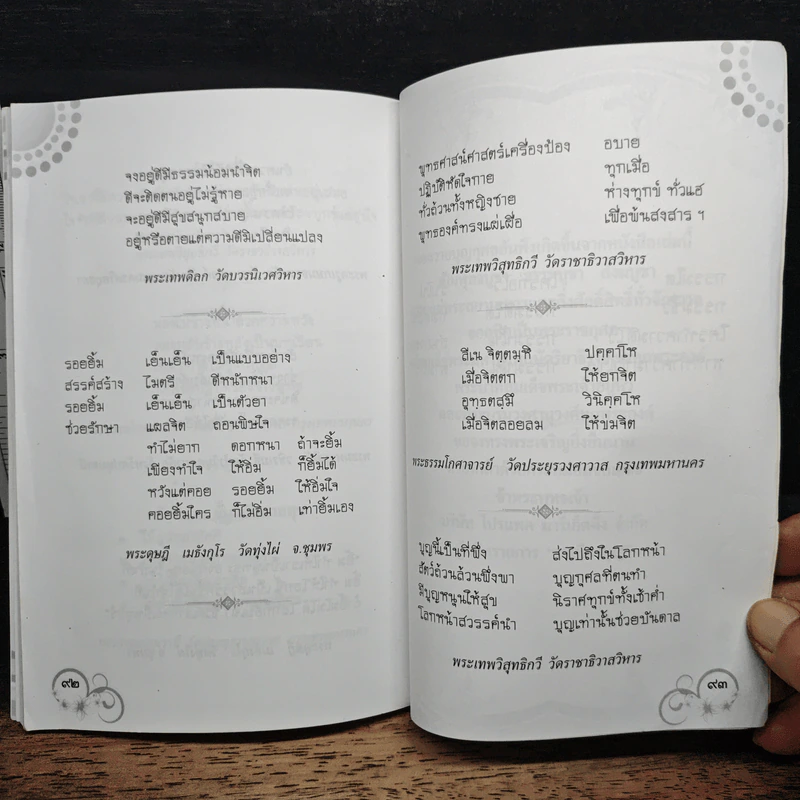 จงอยู่ดีมีธรรมน้อมนำจิต
ดีจะติดตนอยู่ไม่รู้หาย
จะอยู่ดีมีสุขสนุกสบาย
อยู่หรือตายแต่ความดีมิเปลี่ยนแปลง
พระเทพดิลก วัดบวรนิเวศวิหาร
รอยยิ้ม เย็นเย็น เป็นแบบอย่าง
สรรค์สร้าง ไมตรี ดีหนักหนา
รอยยิ้ม เย็นเย็น เป็นตัวยา
ช่วยรักษา แผลจิต ถอนพิษใจ
ทำไม่ยาก ดอกหนา ถ้าจะยิ้ม
เพียงทำใจ ให้อิ่ม ก็ยิ้มได้
หวังแต่คอย รอยยิ้ม ให้อิ่มใจ
คอยยิ้มใคร ก็ไม่อิ่ม เท่ายิ้มเอง
พระดุษฎี เมธังกุโร วัดทุ่งไผ่ จ.ชุมพร
๙๒
พุทธศาสน์ศาสตร์เครื่องป้อง อบาย
ปฏิบัติหัดใจกาย ทุกเมื่อ
ทั่วถ้วนทั้งหญิงชาย ห่างทุกข์ ทั่วแฮ
พุทธองค์ทรงแผ่เผื่อ เพื่อพ้นสงสาร ฯ
พระเทพวิสุทธิกวี วัดราชาธิวาสวิหาร
ลีเน จิตฺตมฺหิ ปคฺคาโห
เมื่อจิตตก ให้ยกจิต
อุทธตสฺมึ วินิคฺคโห
เมื่อจิตลอยลม ให้ข่มจิต
พระธรรมโกศาจารย์ วัดประยุรวงศาวาส กรุงเทพมหานคร
บุญนี้เป็นที่พึ่ง ส่งไปถึงในโลกหน้า
สัตว์ถ้วนล้วนพึ่งพา บุญกุศลที่ตนทำ
มีบุญหนุนให้สุข นิราศทุกข์ทั้งเช้าค่ำ
โลกหน้าสวรรค์นำ บุญเท่านั้นช่วยบันดาล
พระเทพวิสุทธิกวี วัดราชาธิวาสวิหาร
๙๓